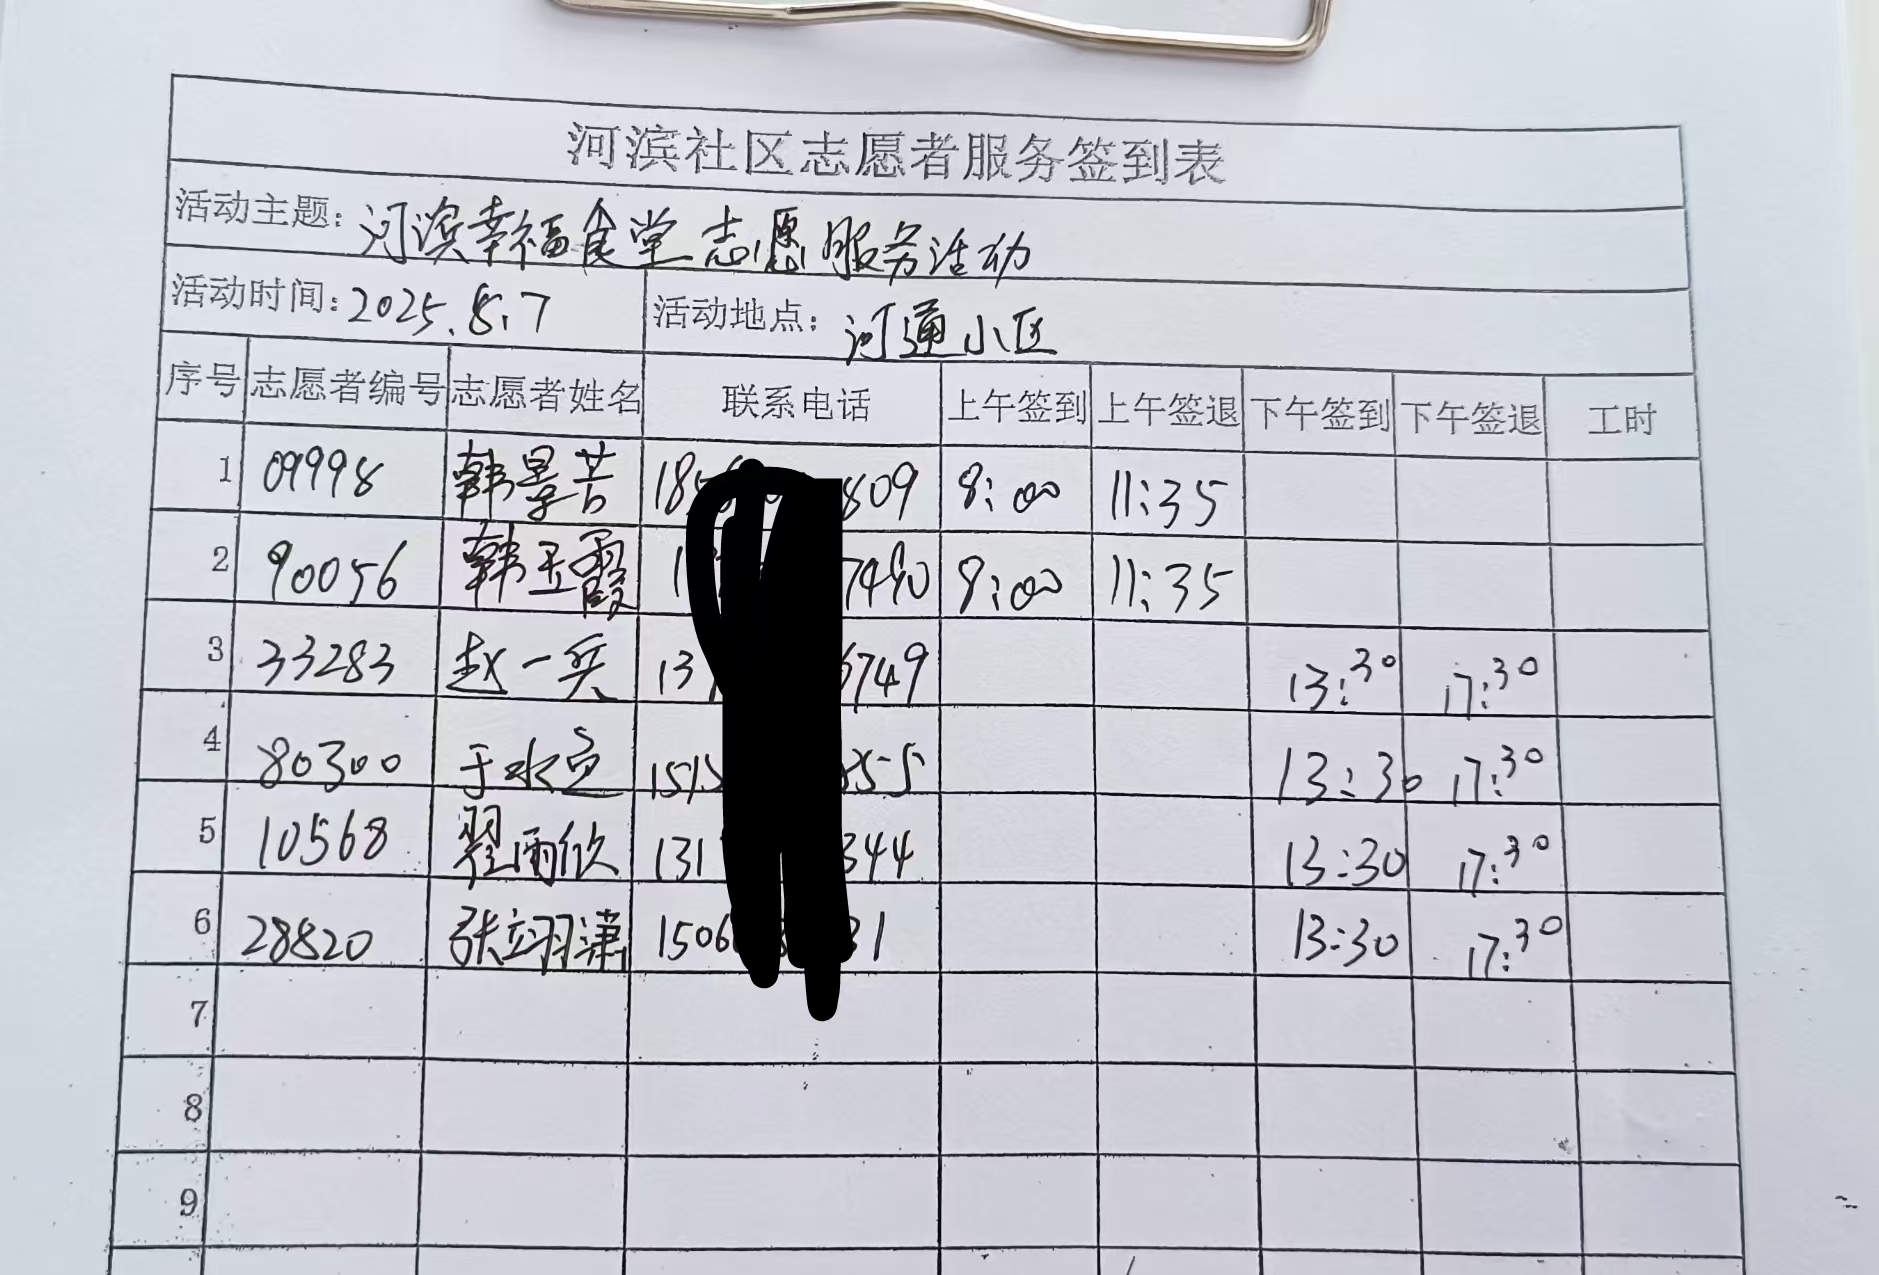 河滨社区志愿者服务签到表
活动主题：河滨幸福食堂志愿服务活动
活动时间：2025.8.7 活动地点：河通小区
序号 志愿者编号 志愿者姓名 联系电话 上午签到 上午签退 下午签到 下午签退 工时
1 09998 韩景芳 185 809 8:00 11:35
2 90056 韩玉霞 1 7490 8:00 11:35
3 33283 赵一奕 13 6749 13:30 17:30
4 80300 于水 1515 355 13:30 17:30
5 10568 翟雨欣 131 344 13:30 17:30
6 28820 张翊潇 1506 31 13:30 17:30
7
8
9